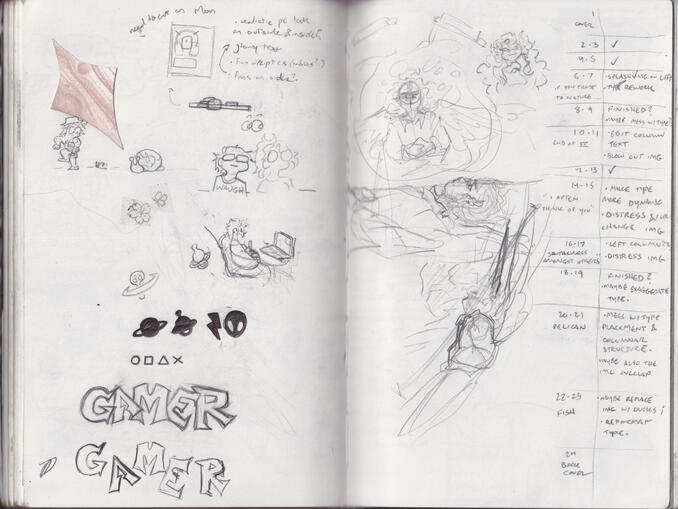 need to cut on Moon
• realistic pc look
on outside & inside?
• fun
WAUGH
GAMER
GAMER
1
COVER
2-3 ✓
4-5 ✓
6-7 • SPLASH IMG ON LEFT
• TYPE REWORK
TO NATURE
8-9 FINISHED?
MAYBE MESS W/ TYPE?
10-11 • EDIT COLUMN
END OF TEXT
• BLOW OUT IMG
12-13 ✓
14-15 • MAKE TYPE
"I OFTEN MORE DYNAMIC
THINK OF YOU" • DISTRESS &/OR
CHANGE IMG
16-17 • LEFT COLUMN?
AMONGST OTHERS • DISTRESS IMG
18-19 FINISHED?
• MAYBE EXAGGERATE
TYPE.
20-21 • MESS W/ TYPE
PELICAN PLACEMENT &
COLUMNAR
STRUCTURE.
MAYBE ALSO THE
IMG OVERLAP
22-23 • MAYBE REPLACE
FISH IMG W/
• REFORMAT
TYPE.
24
BACK
COVER